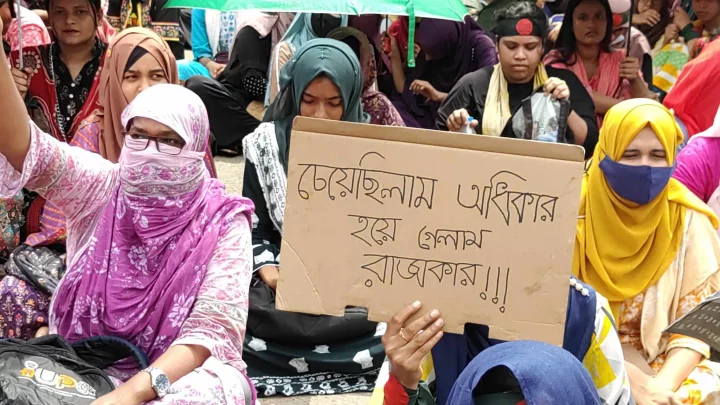 চেয়েছিলাম অধিকার
হয়ে গেলাম
রাজাকার!!!
UP